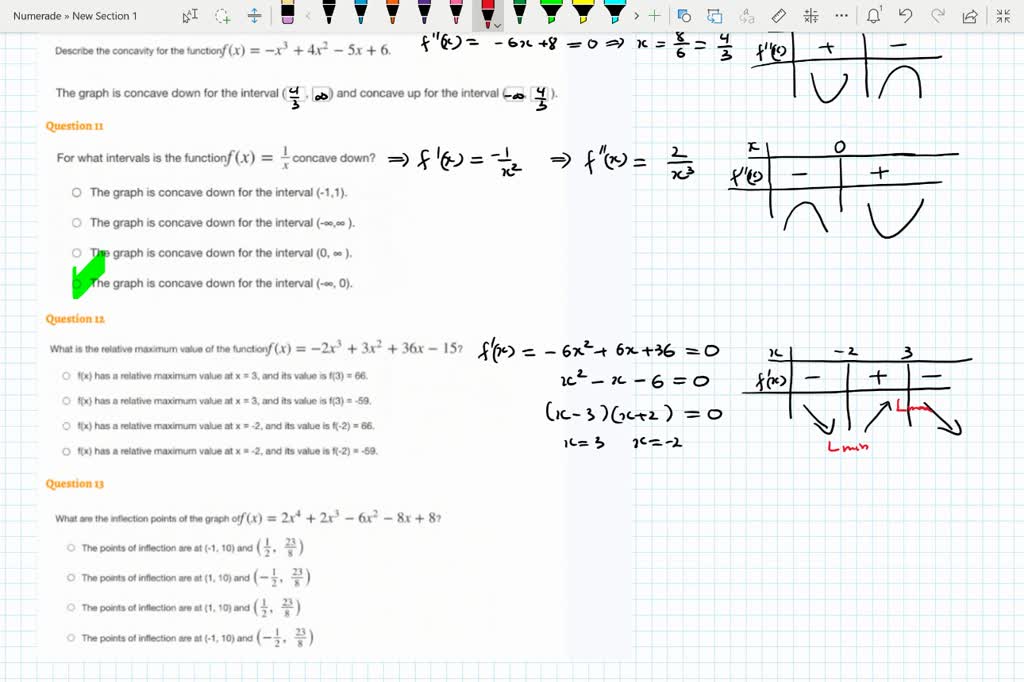 Numerade » New Section 1
Describe the concavity for the function f(x) = −x³ + 4x² − 5x + 6.
f''(x) = -6x+8 = 0 ⇒ x = 8/6 = 4/3
f''(x) + −
The graph is concave down for the interval (4/3, ∞) and concave up for the interval (-∞, 4/3).
Question 11
For what intervals is the function f(x) = 1/x concave down? ⇒ f'(x) = -1/x² ⇒ f''(x) = 2/x³
x 0
f''(x) − +
The graph is concave down for the interval (-1,1).
The graph is concave down for the interval (-∞,∞ ).
The graph is concave down for the interval (0, ∞ ).
The graph is concave down for the interval (-∞, 0).
Question 12
What is the relative maximum value of the function f(x) = −2x³ + 3x² + 36x − 15?
f(x) has a relative maximum value at x = 3, and its value is f(3) = 66.
f(x) has a relative maximum value at x = 3, and its value is f(3) = -59.
f(x) has a relative maximum value at x = -2, and its value is f(-2) = 66.
f(x) has a relative maximum value at x = -2, and its value is f(-2) = -59.
f'(x) = -6x²+6x+36 = 0
x² - x - 6 = 0
(x-3)(x+2) = 0
x=3 x=-2
x -2 3
f'(x) − + −
Lmax
Lmin
Question 13
What are the inflection points of the graph of f(x) = 2x⁴ + 2x³ − 6x² − 8x + 8?
The points of inflection are at (-1, 10) and (1/2, 23/8)
The points of inflection are at (1, 10) and (−1/2, 23/8)
The points of inflection are at (1, 10) and (1/2, 23/8)
The points of inflection are at (-1, 10) and (−1/2, 23/8)